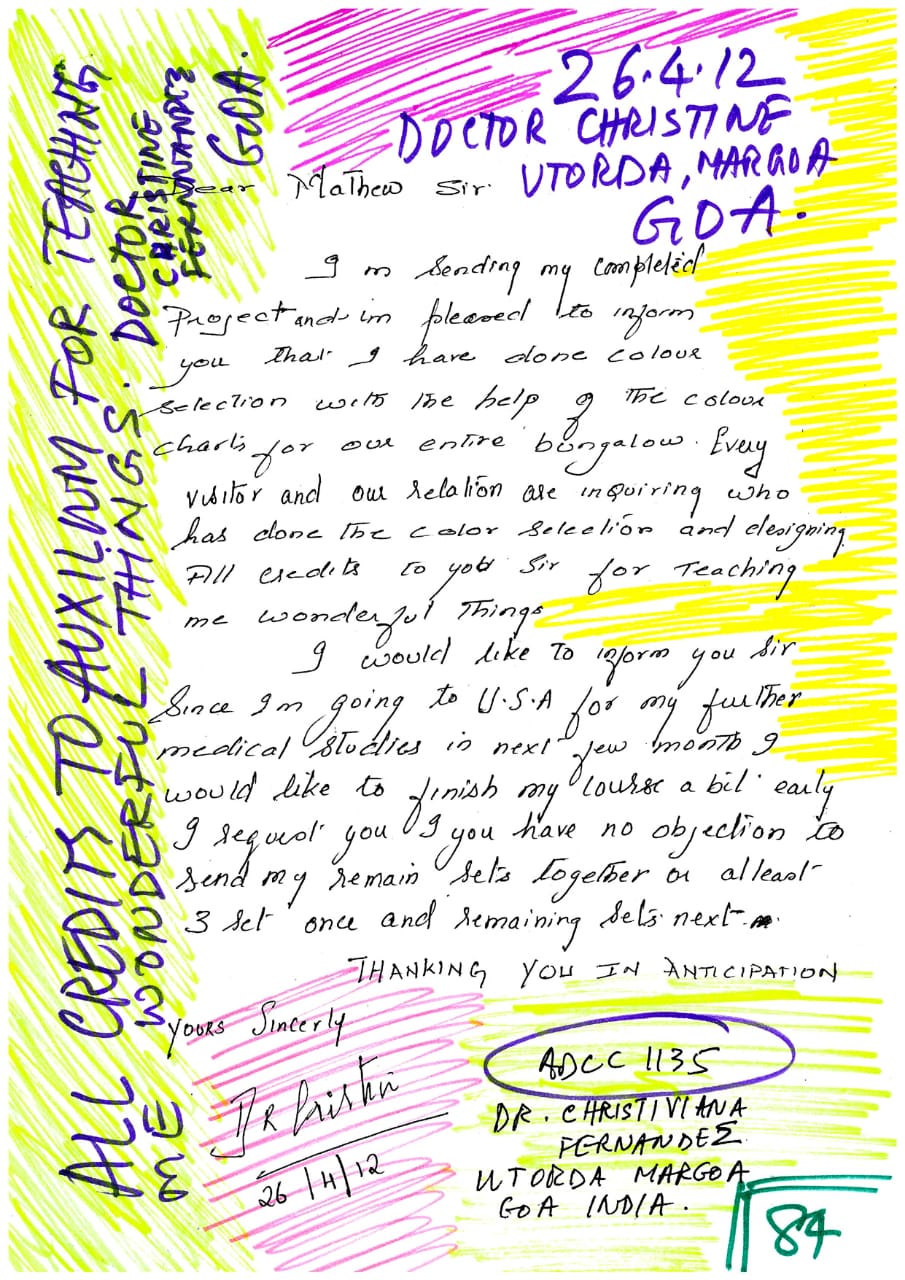 26.4.12
DOCTOR CHRISTINE
UTORDA, MARGOA
GOA.
Dear Mathew Sir.
I m sending my completed
Project and im pleased to inform
you that I have done colour
selection with the help of the colour
charts for our entire bungalow. Every
visitor and our relation are inquiring who
has done the color selection and designing
All credits to you Sir for teaching
me wonderful things
I would like to inform you Sir
Since I m going to U.S.A for my further
medical studies in next few month I
would like to finish my course a bit early
I request you I you have no objection to
send my remain sets together or atleast
3 set once and remaining sets next
THANKING YOU IN ANTICIPATION
YOURS Sincerly
26/4/12
ADCC 1135
DR. CHRISTIVIANA
FERNANDEZ
UTORDA MARGOA
GOA INDIA.
84
ALL CREDITS TO AUXILIWM FOR TEACHING
ME WONDERFUL THINGS. DOCTOR
CHRISTINE
FERNNANDEZ
GOA.